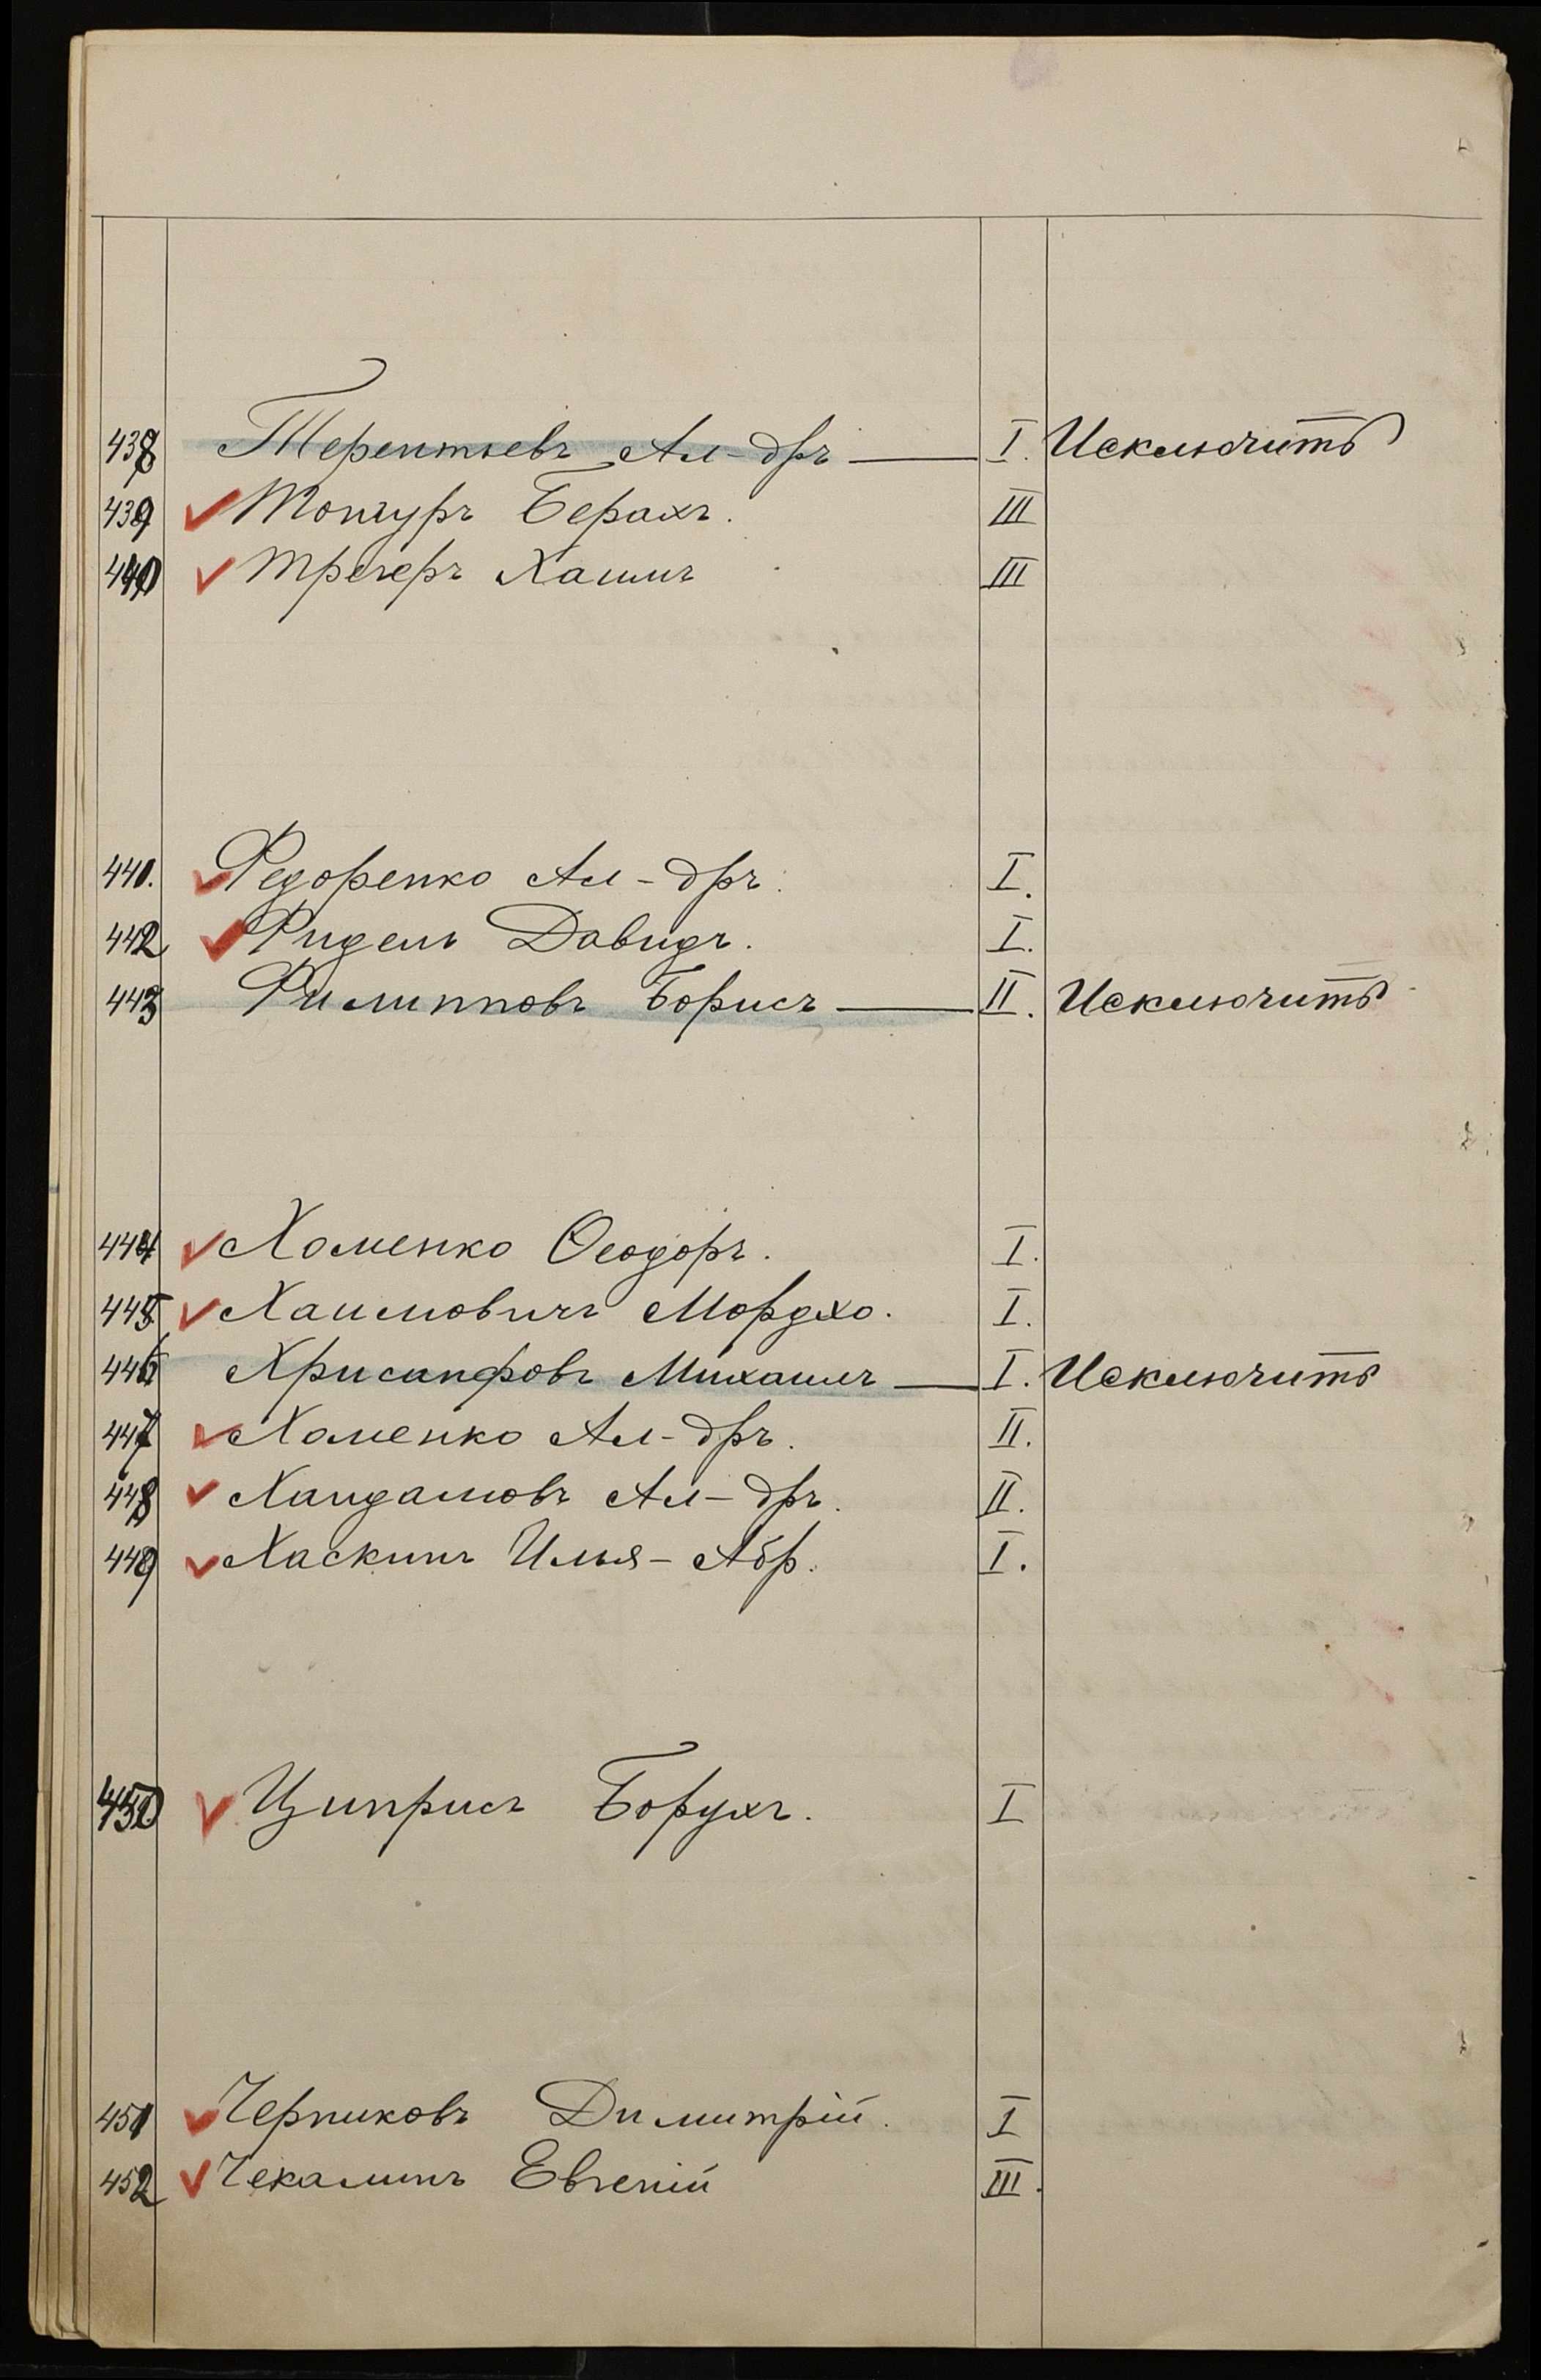 438 Терентьевъ Ал-дръ — I. Исключить
439 Тонгуръ Берахъ. III
440 Трегеръ Хаимъ III
441. Федоренко Ал-дръ. I.
442 Фидель Давидъ. I.
443 Филипповъ Борисъ — II. Исключить
444 Хоменко Ѳеодоръ. I.
445 Хаимовичъ Мордхо. I.
446 Хрисанфовъ Михаилъ — I. Исключить
447 Хоменко Ал-дръ. II.
448 Хандамовъ Ал-дръ. II.
449 Хаскинъ Илья-Абр. I.
450 Циприсъ Борухъ. I
451 Черниковъ Димитрій. I
452 Чекалинъ Евгеній III.